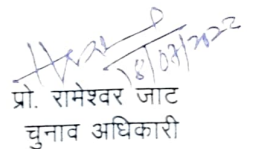 18/07/2022
प्रो. रामेश्वर जाट
चुनाव अधिकारी